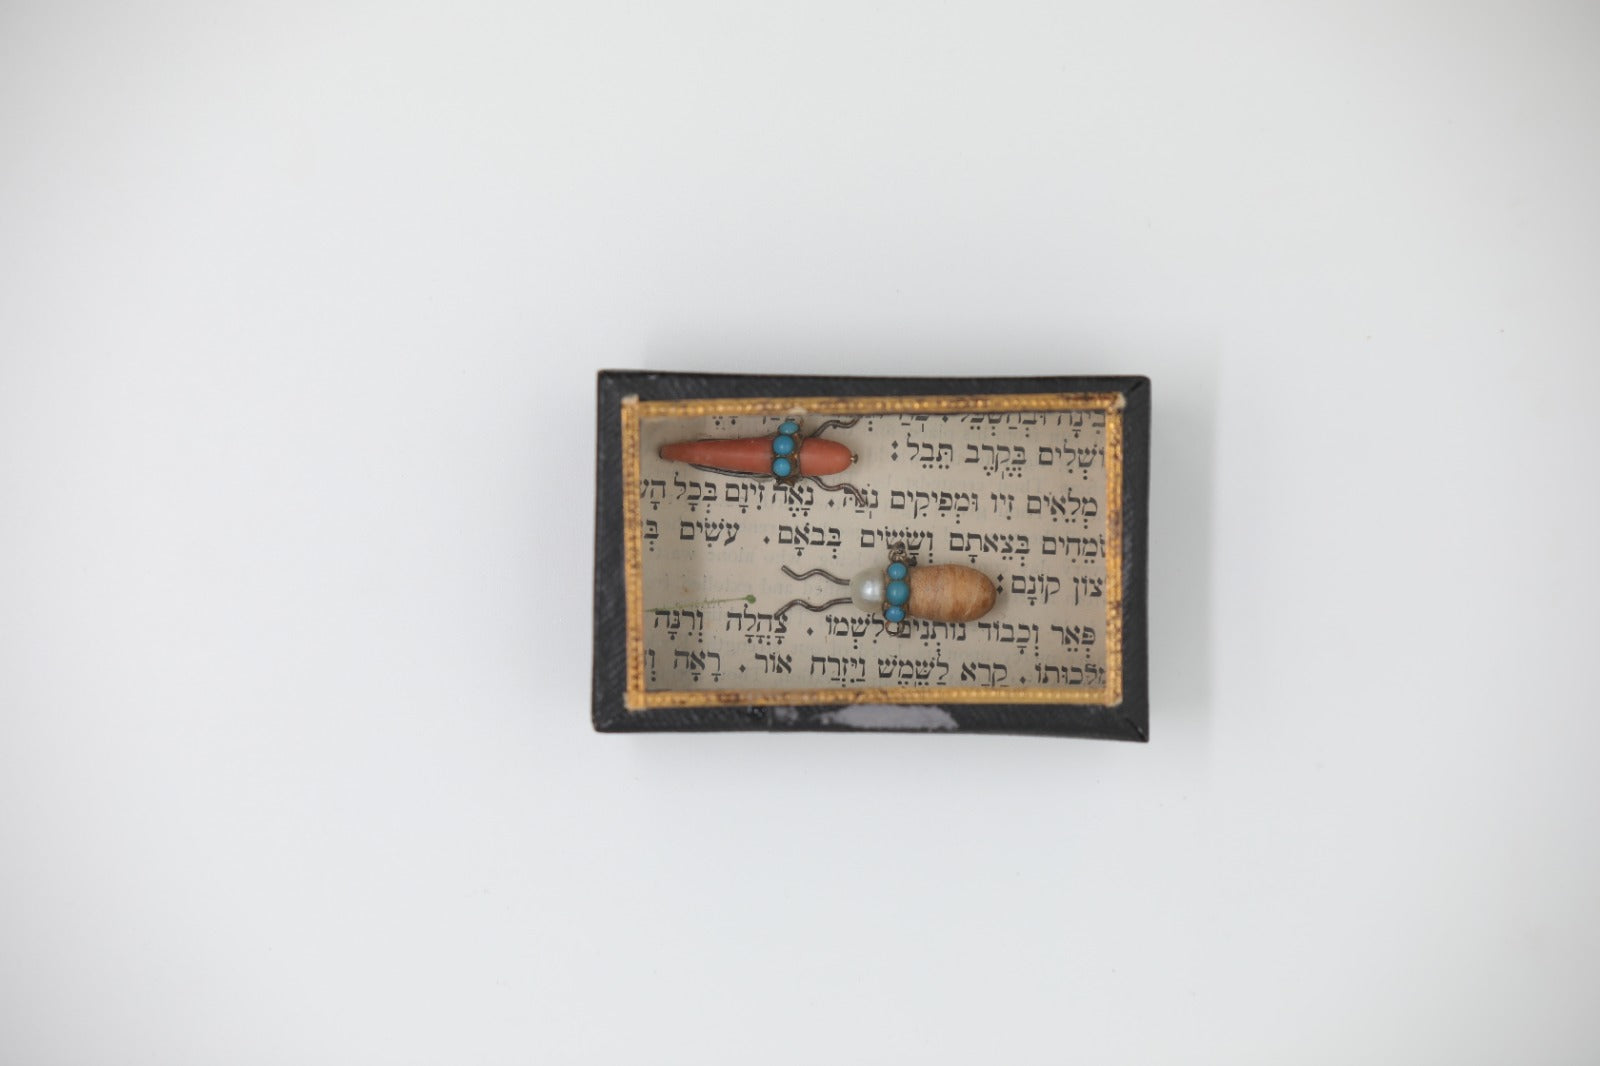 בִּינָה וּבְהַשְׂכֵּל.
בְּקֶרֶב תֵּבֵל:
מְלֵאִים זִיו וּמְפִיקִים נֹגַהּ. נָאֶה זִיוָם בְּכָל
שְׂמֵחִים בְּצֵאתָם וְשָׂשִׂים בְּבֹאָם. עֹשִׂים
קוֹנָם:
פְּאֵר וְכָבוֹד נוֹתְנִים לִשְׁמוֹ. צָהֳלָה וְרִנָּה
מַלְכוּתוֹ. קָרָא לַשֶּׁמֶשׁ וַיִּזְרַח אוֹר. רָאָה